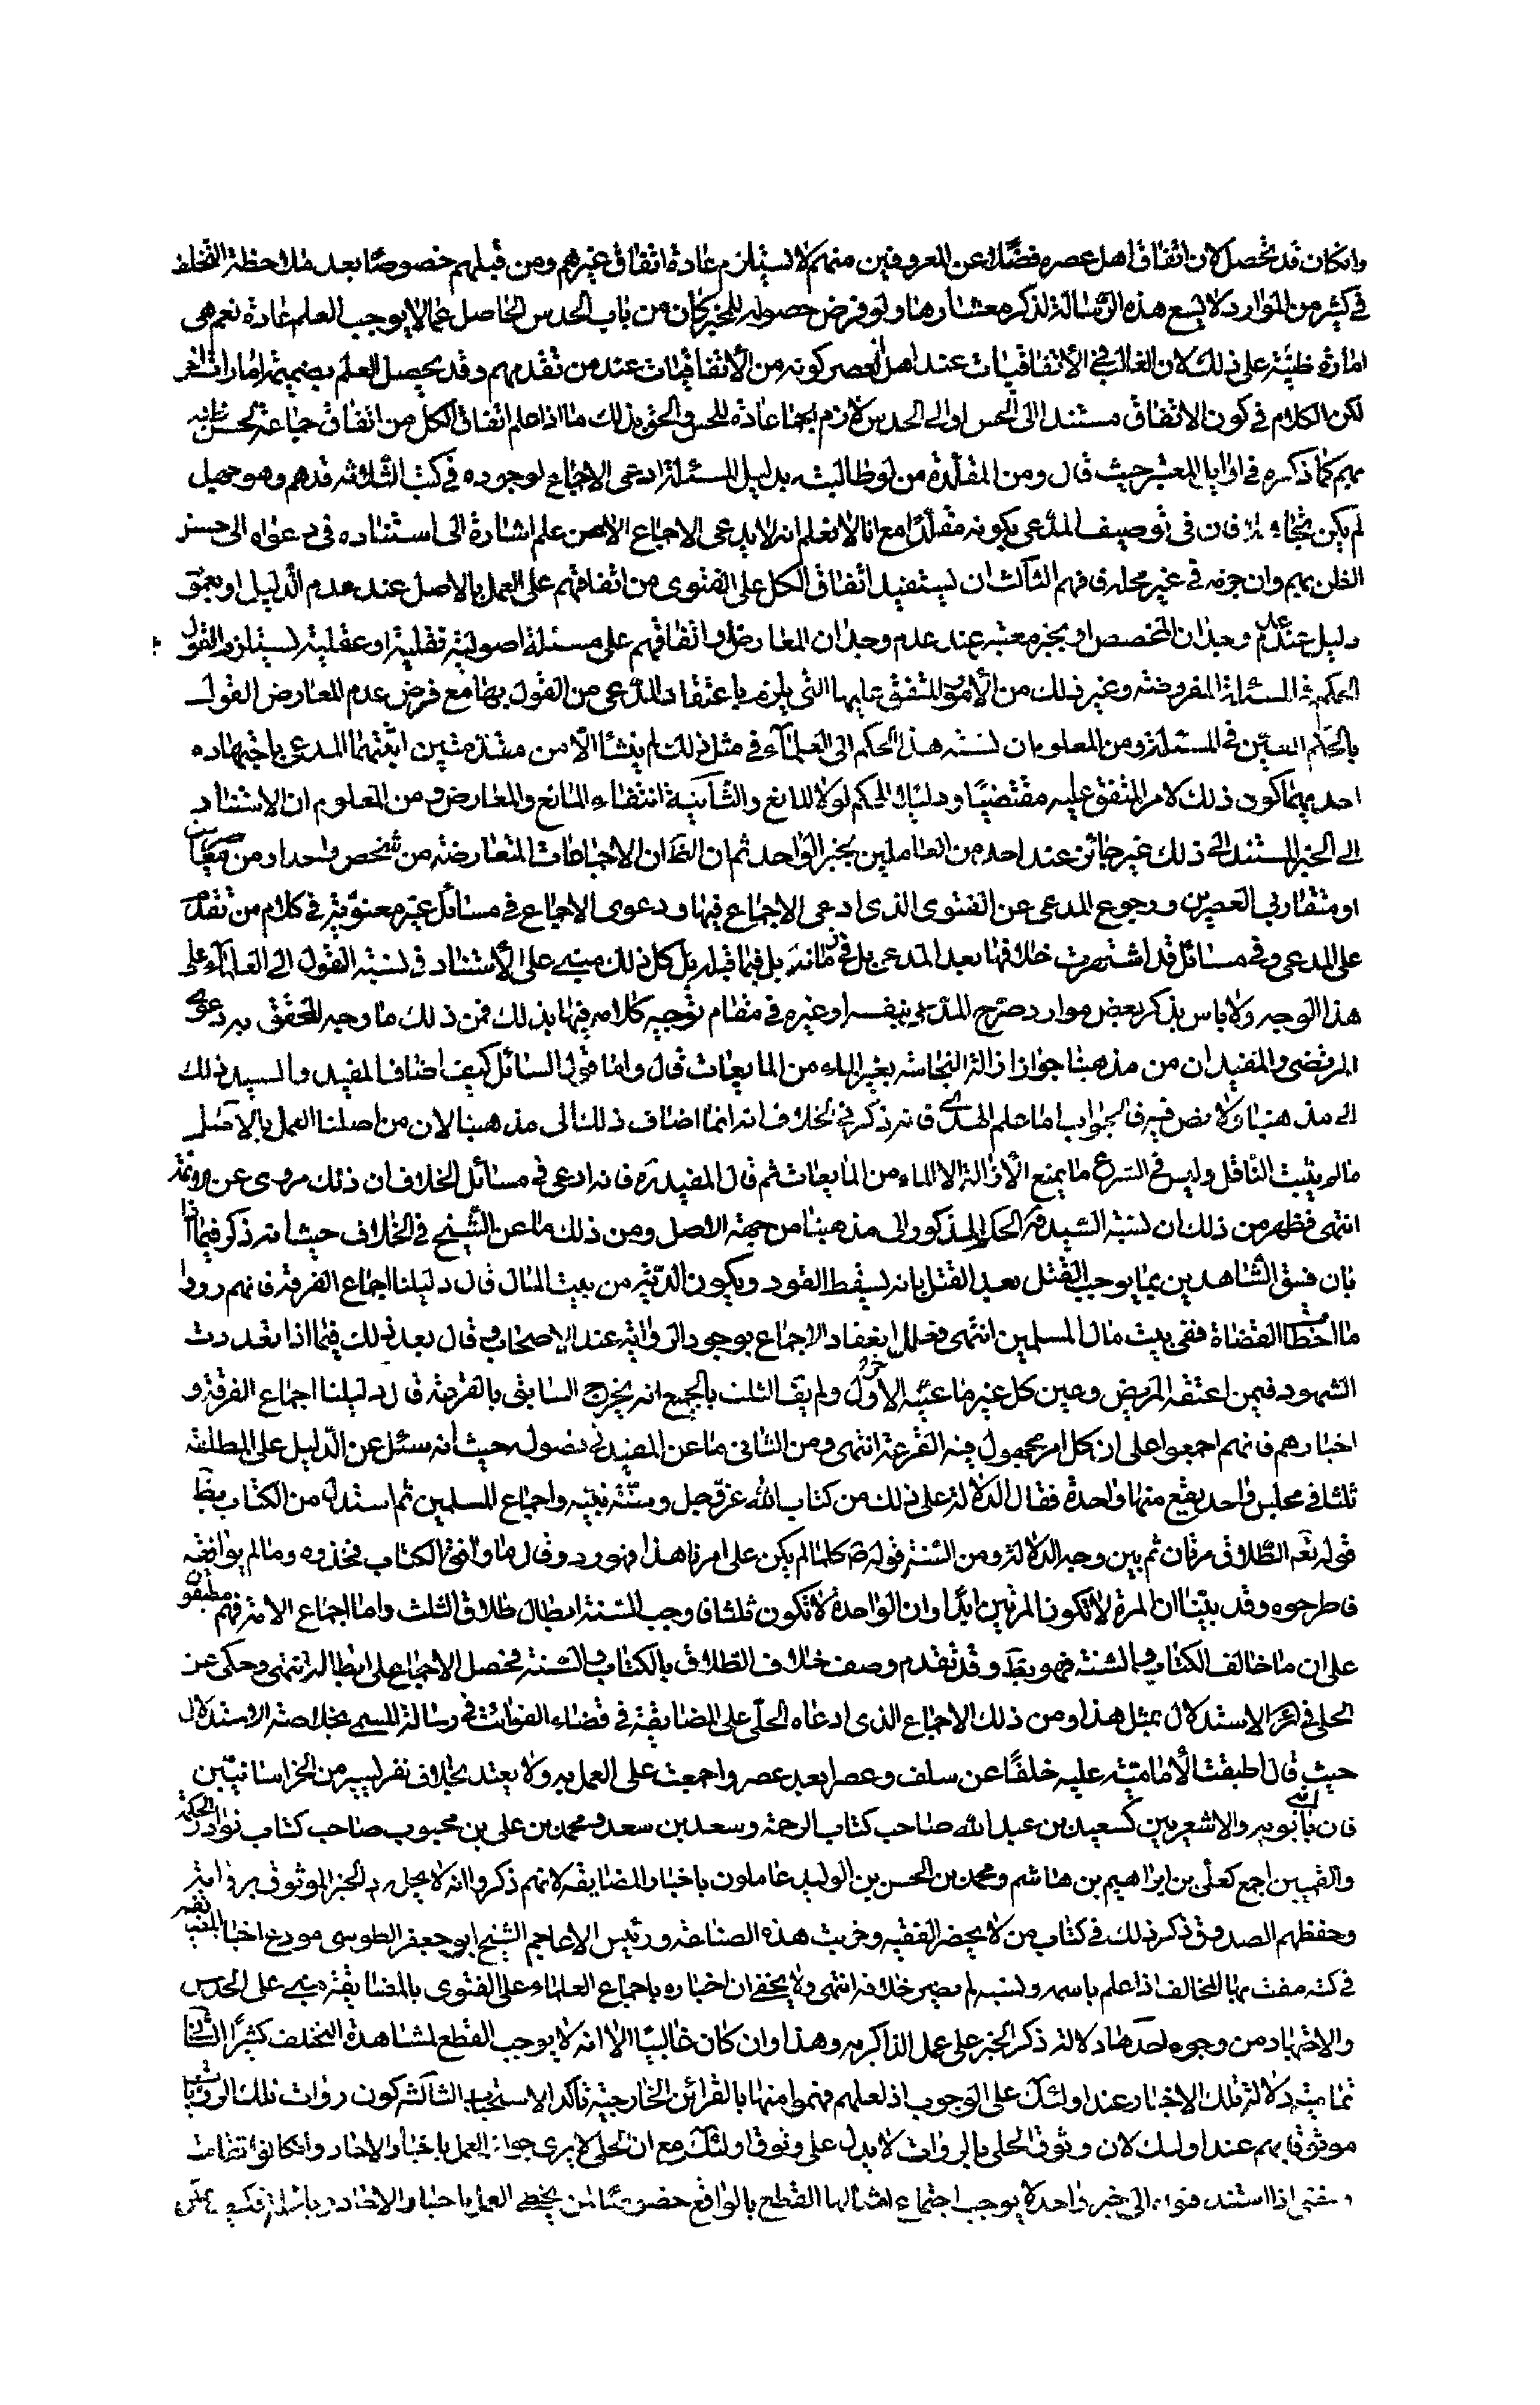 وان كان قد تحصل لان اتفاق اهل عصره فضلا عن المعروفين منهم لا يستلزم عادة اتفاق غيرهم ومن قبلهم خصوصا بعد ملاحظة التخلف
في كثير من الموارد لا يسع هذه الرسالة لذكر معشارها ولو فرض حصوله للمخبر كان من باب الحدس الحاصل عما لا يوجب العلم عادة نعم هي
امارة ظنية على ذلك لان الغالب في الاتفاقيات عند اهل العصر كونه من الاتفاقيات عند من تقدمهم وقد يحصل العلم بضميمة امارات اخر
لكن الكلام في كون الاتفاق مستندا الى الحس او الى الحدس لازم عادة للحس والحق بذلك ما اذا علم اتفاق الكل من اتفاق جماعة لحسن ظنه
بهم كما ذكره في اوايل المعتبر حيث قال ومن المقلدة من لو طالبته بدليل المسئلة ادعى الاجماع لوجوده في كتب الثلاثة قدهم وهو جهل
لم يكن تجاهلا فان في توصيف المدعى بكونه مقلدا مع انا لا نعلم انه لا يدعى الاجماع الا عن علم اشارة الى استناده في دعواه الى حسن
الظن بهم وان جزمه في غير محله فافهم الثالث ان يستفيد اتفاق الكل على الفتوى من اتفاقهم على العمل بالاصل عند عدم الدليل او بعموم
دليل عند عدم وجدان المخصص او بخبر معتبر عند عدم وجدان المعارض او اتفاقهم على مسئلة اصولية نقلية او عقلية يستلزم القول
الحكم في المسئلة المفروضة وغير ذلك من الامور المتفق عليها التي يلزم باعتقاد المدعى من القول بها مع فرض عدم المعارض القول
بالحكم المعين في المسئلة ومن المعلوم ان نسبة هذا الحكم الى العلماء في مثل ذلك لم ينشا الا من مقدمتين اثبتهما المدعى باجتهاده
احديهما كون ذلك الامر المتفق عليه مقتضيا ودليلا للحكم لولا المانع والثانية انتفاء المانع والمعارض ومن المعلوم ان الاستناد
الى الخبر المستند الى ذلك غير جائز عند احد من العاملين بخبر الواحد ثم ان الظ ان الاجماعات المتعارضة من شخص واحد او من معاصرين
او متقاربي العصرين ورجوع المدعى عن الفتوى الذى ادعى الاجماع فيها ودعوى الاجماع في مسائل غير معنونة في كلام من تقدم
على المدعى وفي مسائل قد اشتهرت خلافها بعد المدعى بل في زمانه بل فيما قبله بل كل ذلك مبني على الاستناد في نسبة القول الى العلماء على
هذا الوجه ولا باس بذكر بعض موارد صرح المدعى بنفسه او غيره في مقام توجيه كلامه فيها بذلك فمن ذلك ما وجه المحقق به دعوى
المرتضى والمفيد ان من مذهبنا جواز ازالة النجاسة بغير الماء من المايعات قال واما قول السائل كيف اضاف المفيد والسيد ذلك
الى مذهبنا ولا نص فيه فالجواب اما علم الهدى فانه ذكر في الخلاف انه انما اضاف ذلك الى مذهبنا لان من اصلنا العمل بالاصل
ما لم يثبت الناقل وليس في الشرع ما يمنع الازالة الا الماء من المايعات ثم قال المفيد ره فانه ادعى في مسائل الخلاف ان ذلك مروى عن الائمة
انتهى فظهر من ذلك ان نسبة السيد قده الحكم المذكور الى مذهبنا من جهة الاصل ومن ذلك ما عن الشيخ في الخلاف حيث انه ذكر فيما اذا
بان فسق الشاهدين بما يوجب القتل بعد القتل بانه يسقط القود ويكون الدية من بيت المال قال دليلنا اجماع الفرقة فانهم رووا
ما اخطات القضاة ففى بيت مال المسلمين انتهى فعلل انعقاد الاجماع بوجود الرواية عند الاصحاب وقال بعد ذلك فيما اذا تعددت
الشهود فيمن اعتقه المريض وعين كل غير ما عينه الاخر ولم يف الثلث بالجميع انه يخرج السابق بالقرعة قال دليلنا اجماع الفرقة و
اخبارهم فانهم اجمعوا على ان كل امر مجهول فيه القرعة انتهى ومن الثانى ما عن المفيد في فصوله حيث انه سئل عن الدليل على المطلقة
ثلثا في مجلس واحد يقع منها واحدة فقال الدلالة على ذلك من كتاب الله عز وجل وسنة نبيه واجماع المسلمين ثم استدل من الكتاب بظ
قوله تعه الطلاق مرتان ثم بين وجه الدلالة ومن السنة قوله ص كلما لم يكن على امرنا هذا فهو رد وقال ما وافق الكتاب فخذوه وما لم يوافقه
فاطرحوه وقد بينا ان المرة لا تكون المرتين ابدا وان الواحدة لا تكون ثلثا فاوجب السنة ابطال طلاق الثلث واما اجماع الامة فهم مطبقون
على ان ما خالف الكتاب والسنة فهو بط وقد تقدم وصف خلاف الطلاق بالكتاب والسنة فحصل الاجماع على ابطاله انتهى وحكى عن
الحلى في ئر الاستدلال بمثل هذا ومن ذلك الاجماع الذى ادعاه الحلى على المضايقة في قضاء الفوائت في رسالة المسمى بخلاصة الاستدلال
حيث قال اطبقت الامامية عليه خلفا عن سلف وعصرا بعد عصر واجمعت على العمل به ولا يعتد بخلاف نفر يسير من الخراسانيين
فان ابنى بابويه والاشعريين كسعيد بن عبد الله صاحب كتاب الرحمة وسعد بن سعد ومحمد بن على بن محبوب صاحب كتاب نوادر الحكمة
والقميين اجمع كعلى بن ابراهيم بن هاشم ومحمد بن الحسن بن الوليد عاملون باخبار المضايقة لانهم ذكروا انه لا يحل رد الخبر الموثوق برواته
وحفظهم الصدوق ذكر ذلك في كتاب من لا يحضره الفقيه وخريت هذه الصناعة ورئيس الاعاجم الشيخ ابو جعفر الطوسي مودع اخبار المضايقة
في كتبه مفت بها المخالف اذا علم باسمه ونسبه لم يضر خلافه انتهى ولا يخفى ان اخباره باجماع العلماء على الفتوى بالمضايقة مبنى على الحدس
والاجتهاد من وجوه احدها دلالة ذكر الخبر على عمل الذاكر به وهذا وان كان غالبيا الا انه لا يوجب القطع لمشاهدة التخلف كثيرا الثاني
تمامية دلالة تلك الاخبار عند اولئك على الوجوب اذ لعلهم فهموا منها بالقرائن الخارجية تاكد الاستحباب الثالث كون روات تلك الروايات
موثوقا بهم عند اولئك لان وثوق الحلى بالروات لا يدل على وثوق اولئك مع ان الحلى لا يرى جواز العمل باخبار الاحاد وان كانوا ثقات
والمفتى اذا استند فتواه الى خبر واحد لا يوجب اجتماع امثالها القطع بالواقع خصوصا لمن يخطى العمل باخبار الاحاد وبالجملة فكيف